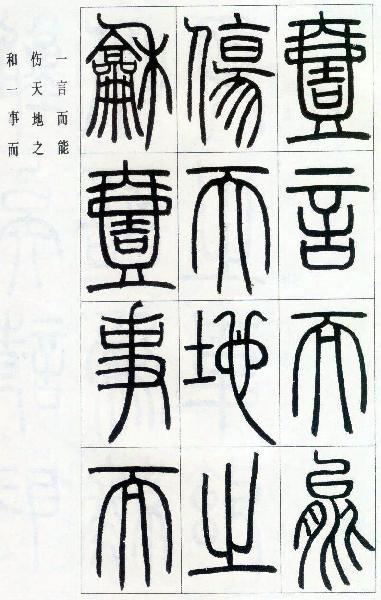 壹言而能
傷天地之
龢壹事而
一言而能
伤天地之
和一事而